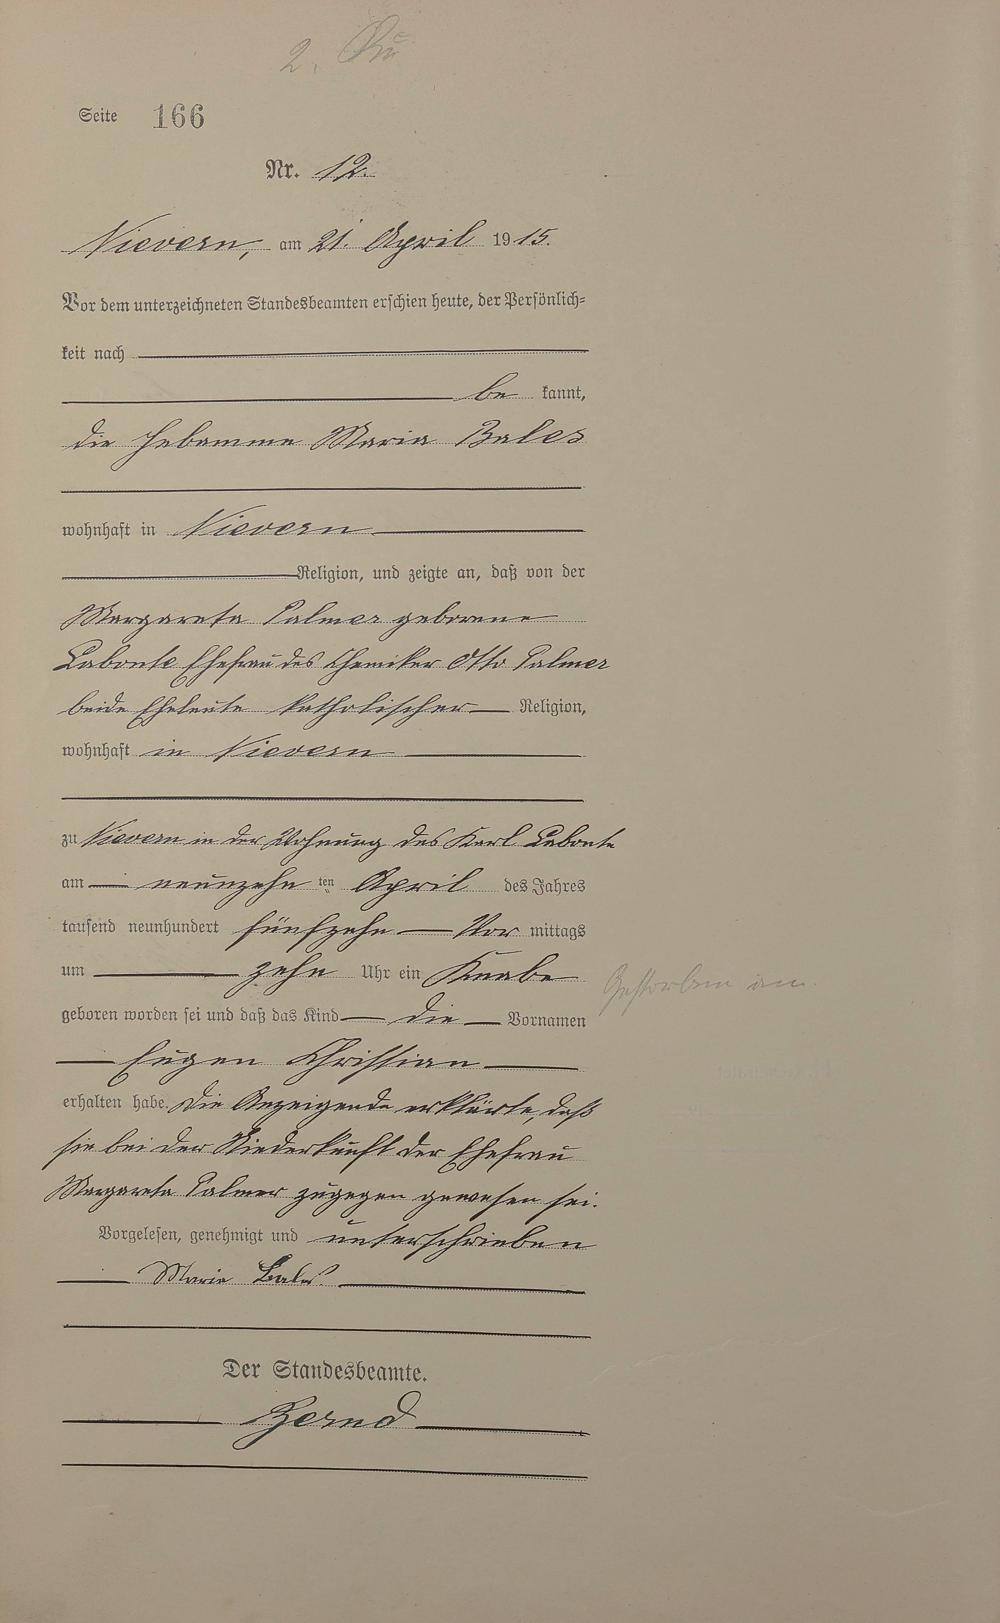 2.
Seite 166
Nr. 12.
Nievern, am 21. April 1915.
Vor dem unterzeichneten Standesbeamten erschien heute, der Persönlich-
keit nach
be kannt,
die Hebamme Maria Bales
wohnhaft in Nievern
Religion, und zeigte an, daß von der
Margareta Palmer geborene
Labonte Ehefrau des Chemiker Otto Palmer
beide Eheleute katholischer Religion,
wohnhaft in Nievern
zu Nievern in der Wohnung des Karl Labonte
am neunzehn ten April des Jahres
tausend neunhundert fünfzehn Vor mittags
um zehn Uhr ein Knabe
Gestorben am
geboren worden sei und daß das Kind die Vornamen
Eugen Christian
erhalten habe. Die Anzeigende erklärte, daß
sie bei der Niederkunft der Ehefrau
Margareta Palmer zugegen gewesen sei.
Vorgelesen, genehmigt und unterschrieben
Maria Bales
Der Standesbeamte.